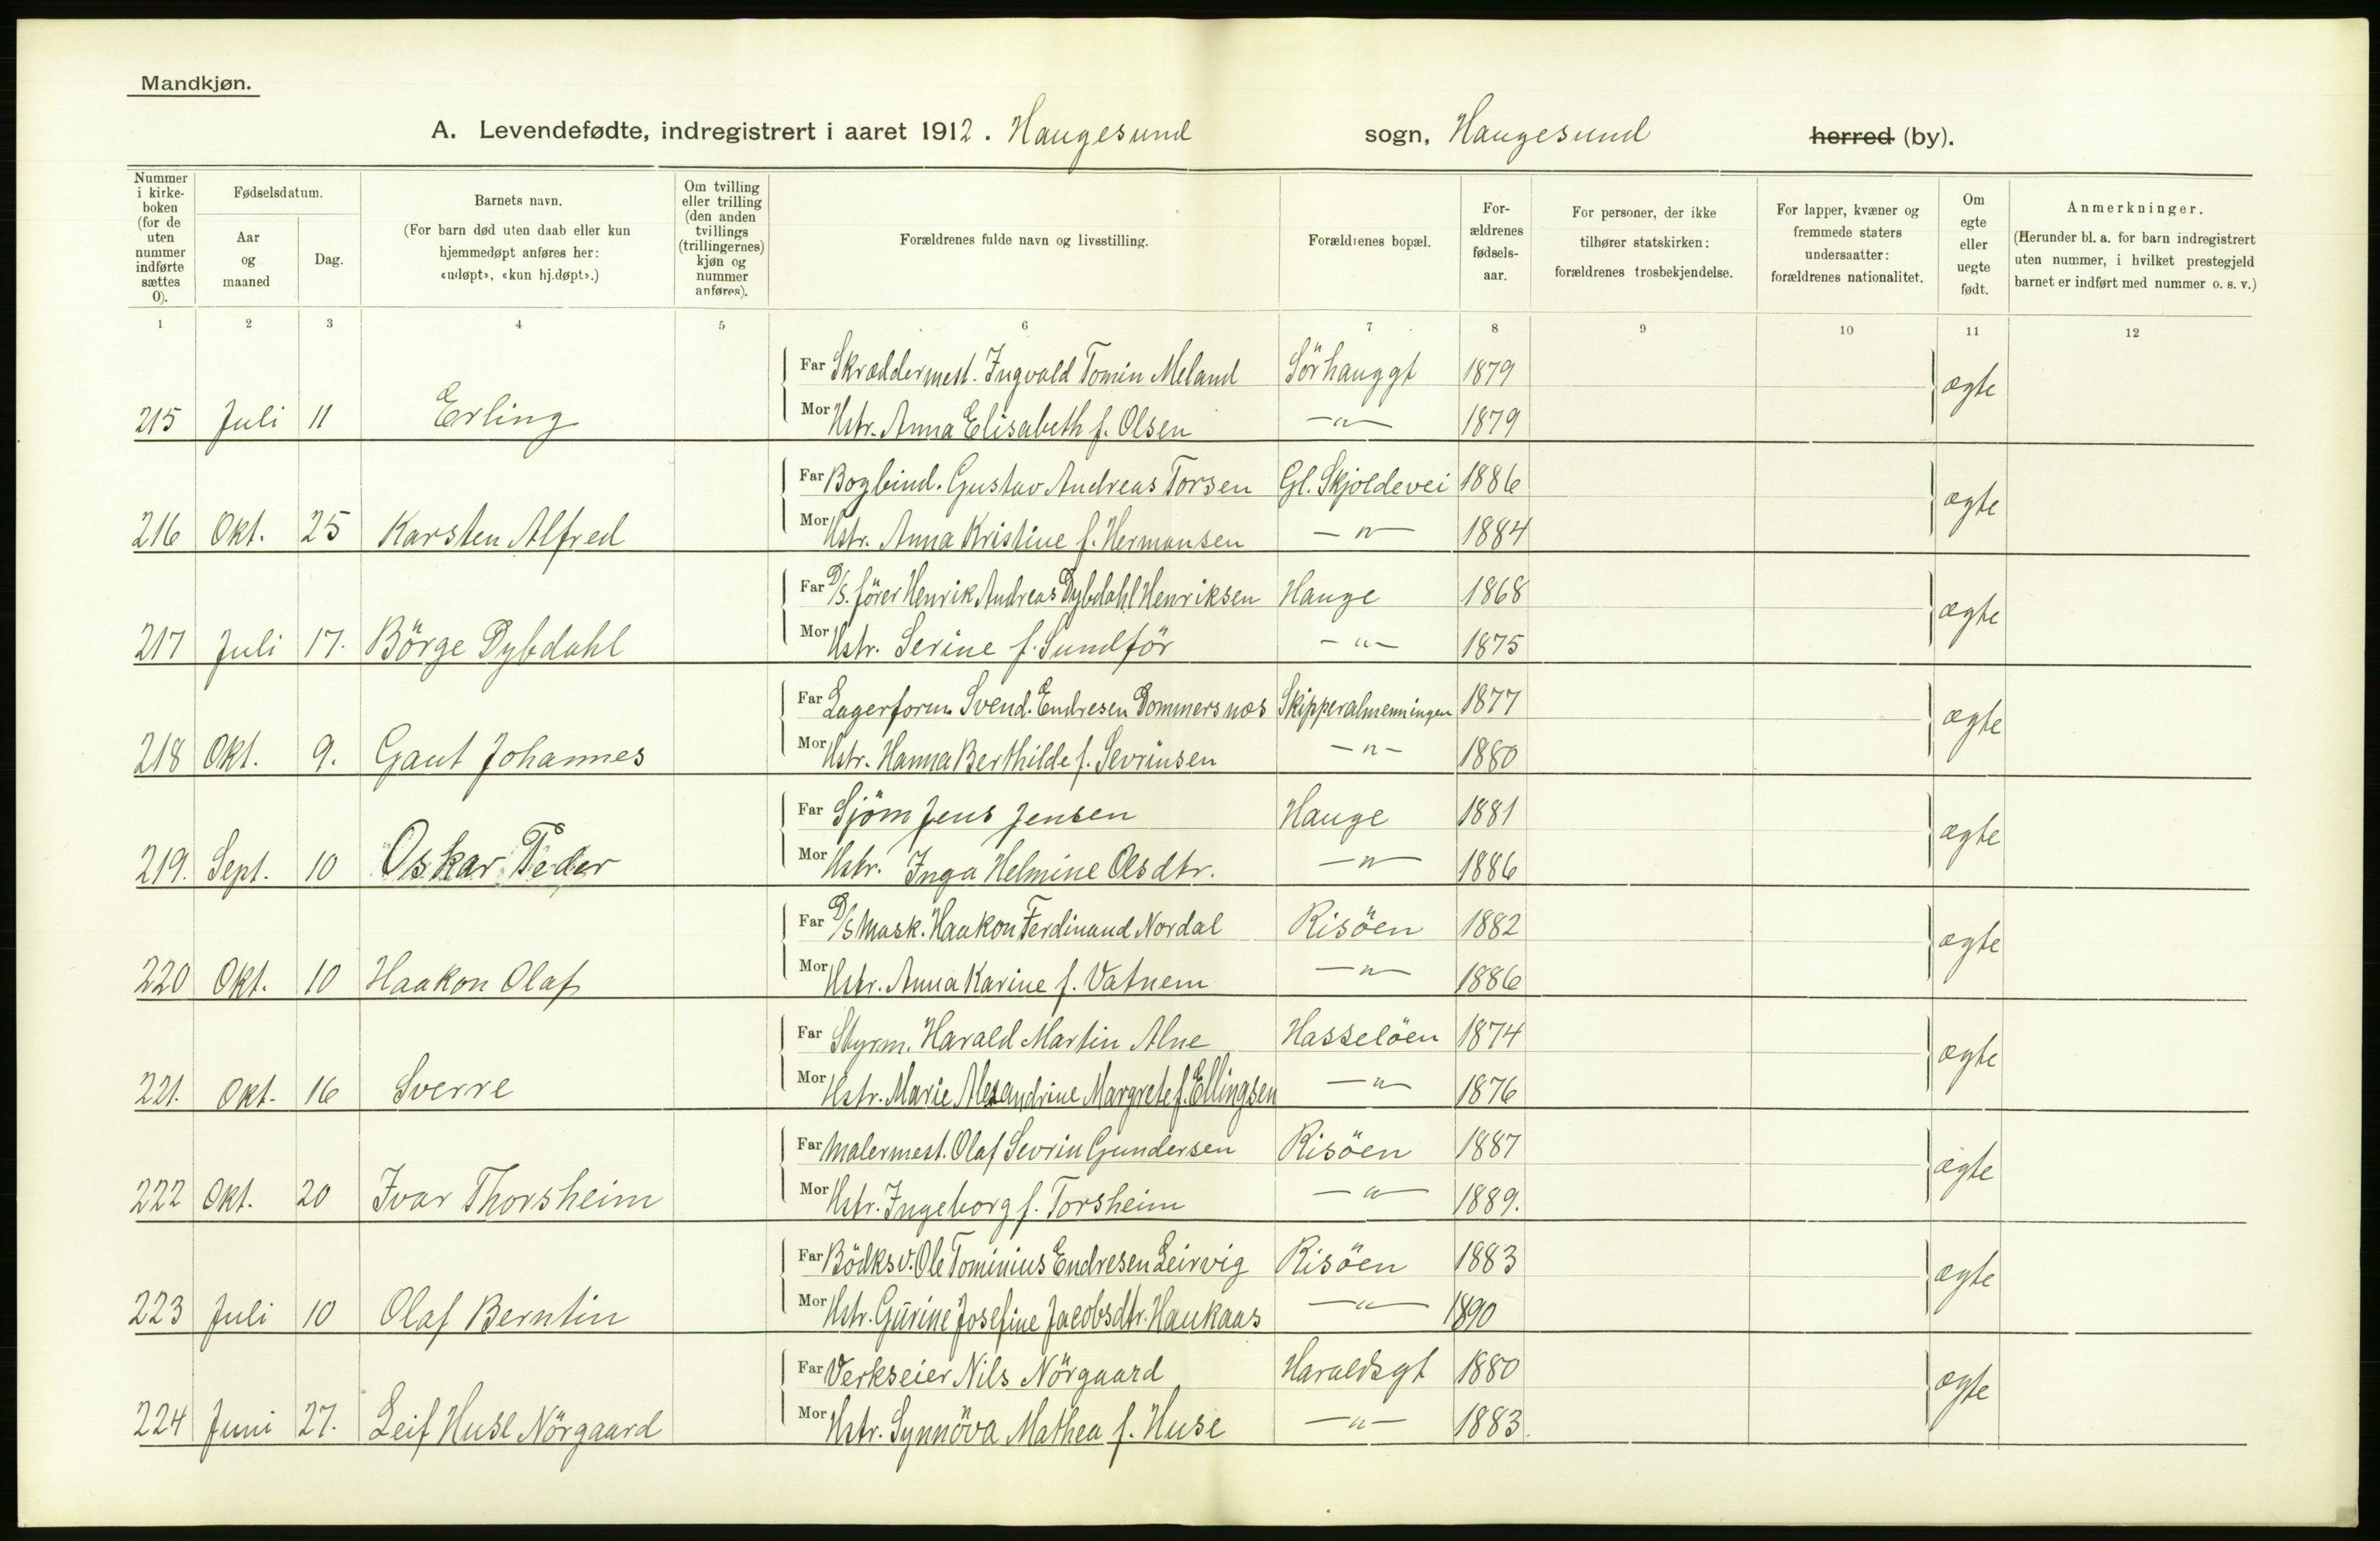 Mandkjøn.
A. Levendefødte, indregistrert i aaret 1912. Haugesund sogn, Haugesund herred (by).
Nummer i kirke-boken (for de uten nummer indførte sættes 0).
Fødselsdatum.
Aar og maaned
Dag.
Barnets navn.
(For barn død uten daab eller kun hjemmedøpt anføres her: «udøpt», «kun hj.døpt».)
Om tvilling eller trilling (den anden tvillings (trillingernes) kjøn og nummer anføres).
Forældrenes fulde navn og livsstilling.
Forældrenes bopæl.
For-ældrenes fødsels-aar.
For personer, der ikke tilhører statskirken: forældrenes trosbekjendelse.
For lapper, kvæner og fremmede staters undersaatter: forældrenes nationalitet.
Om egte eller uegte født.
Anmerkninger.
(Herunder bl. a. for barn indregistrert uten nummer, i hvilket prestegjeld barnet er indført med nummer o. s. v.)
1 2 3 4 5 6 7 8 9 10 11 12
Far Skræddermest. Ingvald Tomin Meland Sörhauggt 1879 ægte
215 Juli 11 Erling Mor Hstr. Anna Elisabeth f. Olsen —"— 1879
Far Bogbind. Gustav Andreas Torsen Gl. Skjoldevei 1886 ægte
216 Okt. 25 Karsten Alfred Mor Hstr. Anna Kristine f. Hermansen —"— 1884
Far D/S. förer Henrik Andreas Dybdahl Henriksen Hauge 1868 ægte
217 Juli 17. Börge Dybdahl Mor Hstr. Serine f. Sundför —"— 1875
Far Lagerform. Svend. Endresen Dommersnæs Skipperalmenningen 1877 ægte
218 Okt. 9. Gaut Johannes Mor Hstr. Hanna Berthilde f. Sevrinsen —"— 1880
Far Sjöm Jens Jensen Hauge 1881 ægte
219. Sept. 10 Oskar Peder Mor Hstr. Inga Helmine Olsdtr. —"— 1886
Far D/S Mask. Haakon Ferdinand Nordal Risöen 1882 ægte
220 Okt. 10 Haakon Olaf Mor Hstr. Anna Karine f. Vatnem —"— 1886
Far Styrm. Harald Martin Alne Hasselöen 1874 ægte
221. Okt. 16 Sverre Mor Hstr. Marie Alexandrine Margrete f. Ellingsen —"— 1876
Far Malermest. Olaf Sevrin Gundersen Risöen 1887 ægte
222 Okt. 20 Ivar Thorsheim Mor Hstr. Ingeborg f. Torsheim —"— 1889.
Far Bödksv. Ole Tominius Endresen Leirvig Risöen 1883 ægte
223 Juli 10 Olaf Berntin Mor Hstr. Gurine Josefine Jacobsdtr. Haukaas —"— 1890
Far Verkseier Nils Nörgaard Haraldsgt 1880 ægte
224 Juni 27. Leif Huse Nörgaard Mor Hstr. Synnöva Mathea f. Huse —"— 1883.